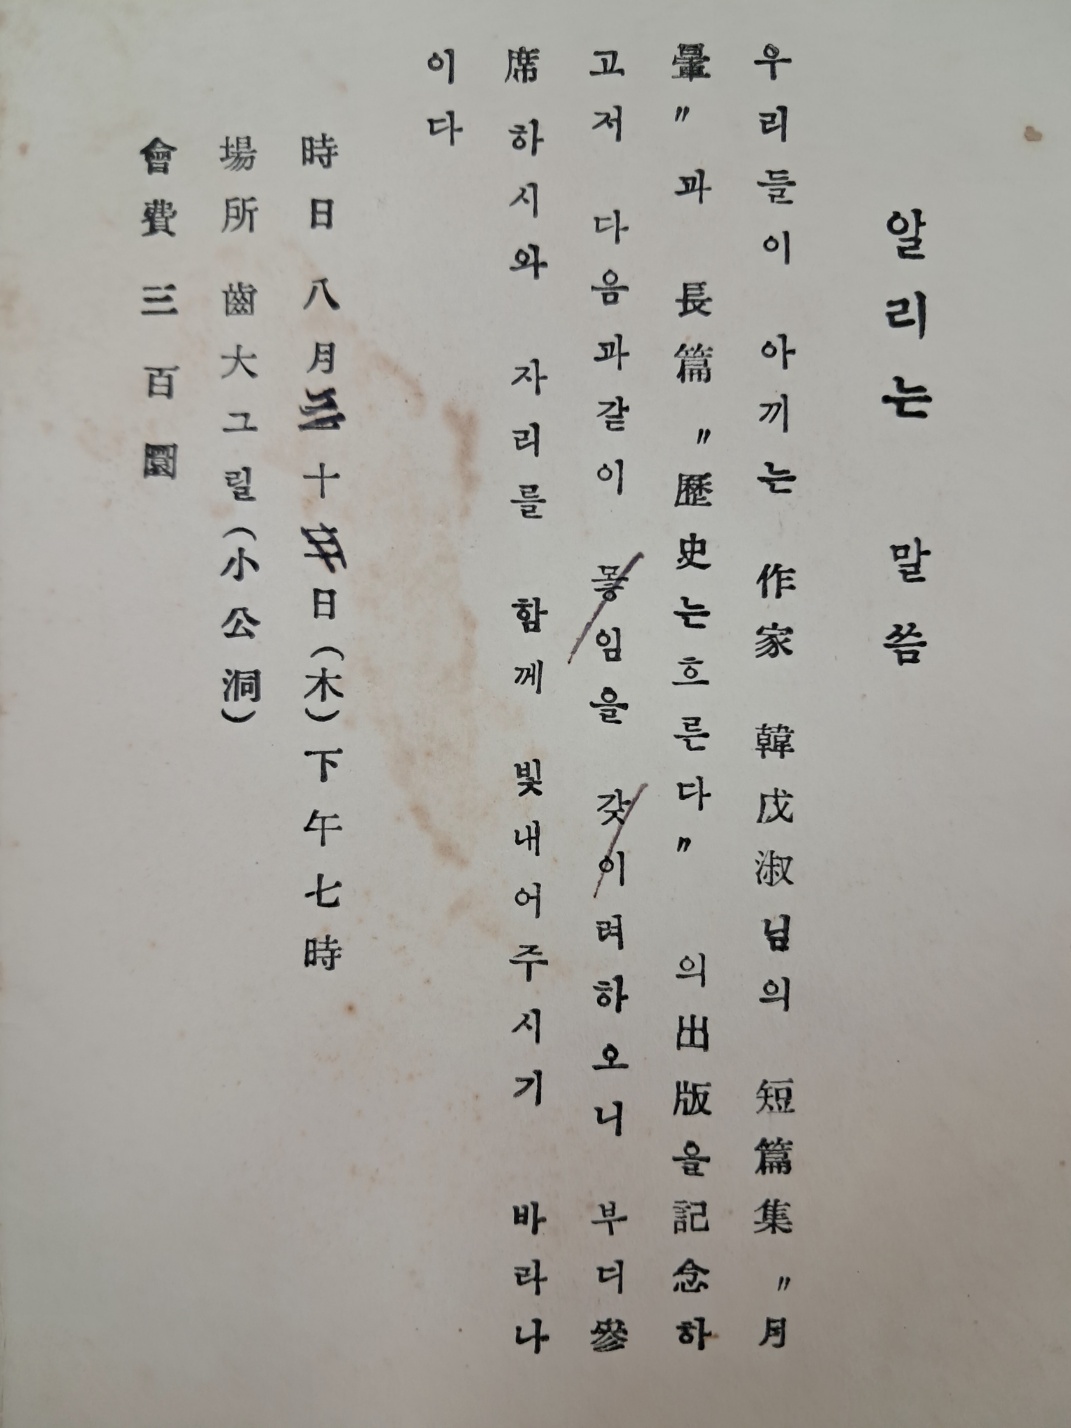 알리는 말씀
우리들이 아끼는 作家 韓戊淑님의 短篇集 〃月
暈〃과 長篇 〃歷史는흐른다〃 의出版을記念하
고저 다음과같이 뫃임을 갖이려하오니 부디參
席하시와 자리를 함께 빛내어주시기 바라나
이다
時日 八月 十 日(木)下午七時
場所 齒大그릴(小公洞)
會費 三百圜